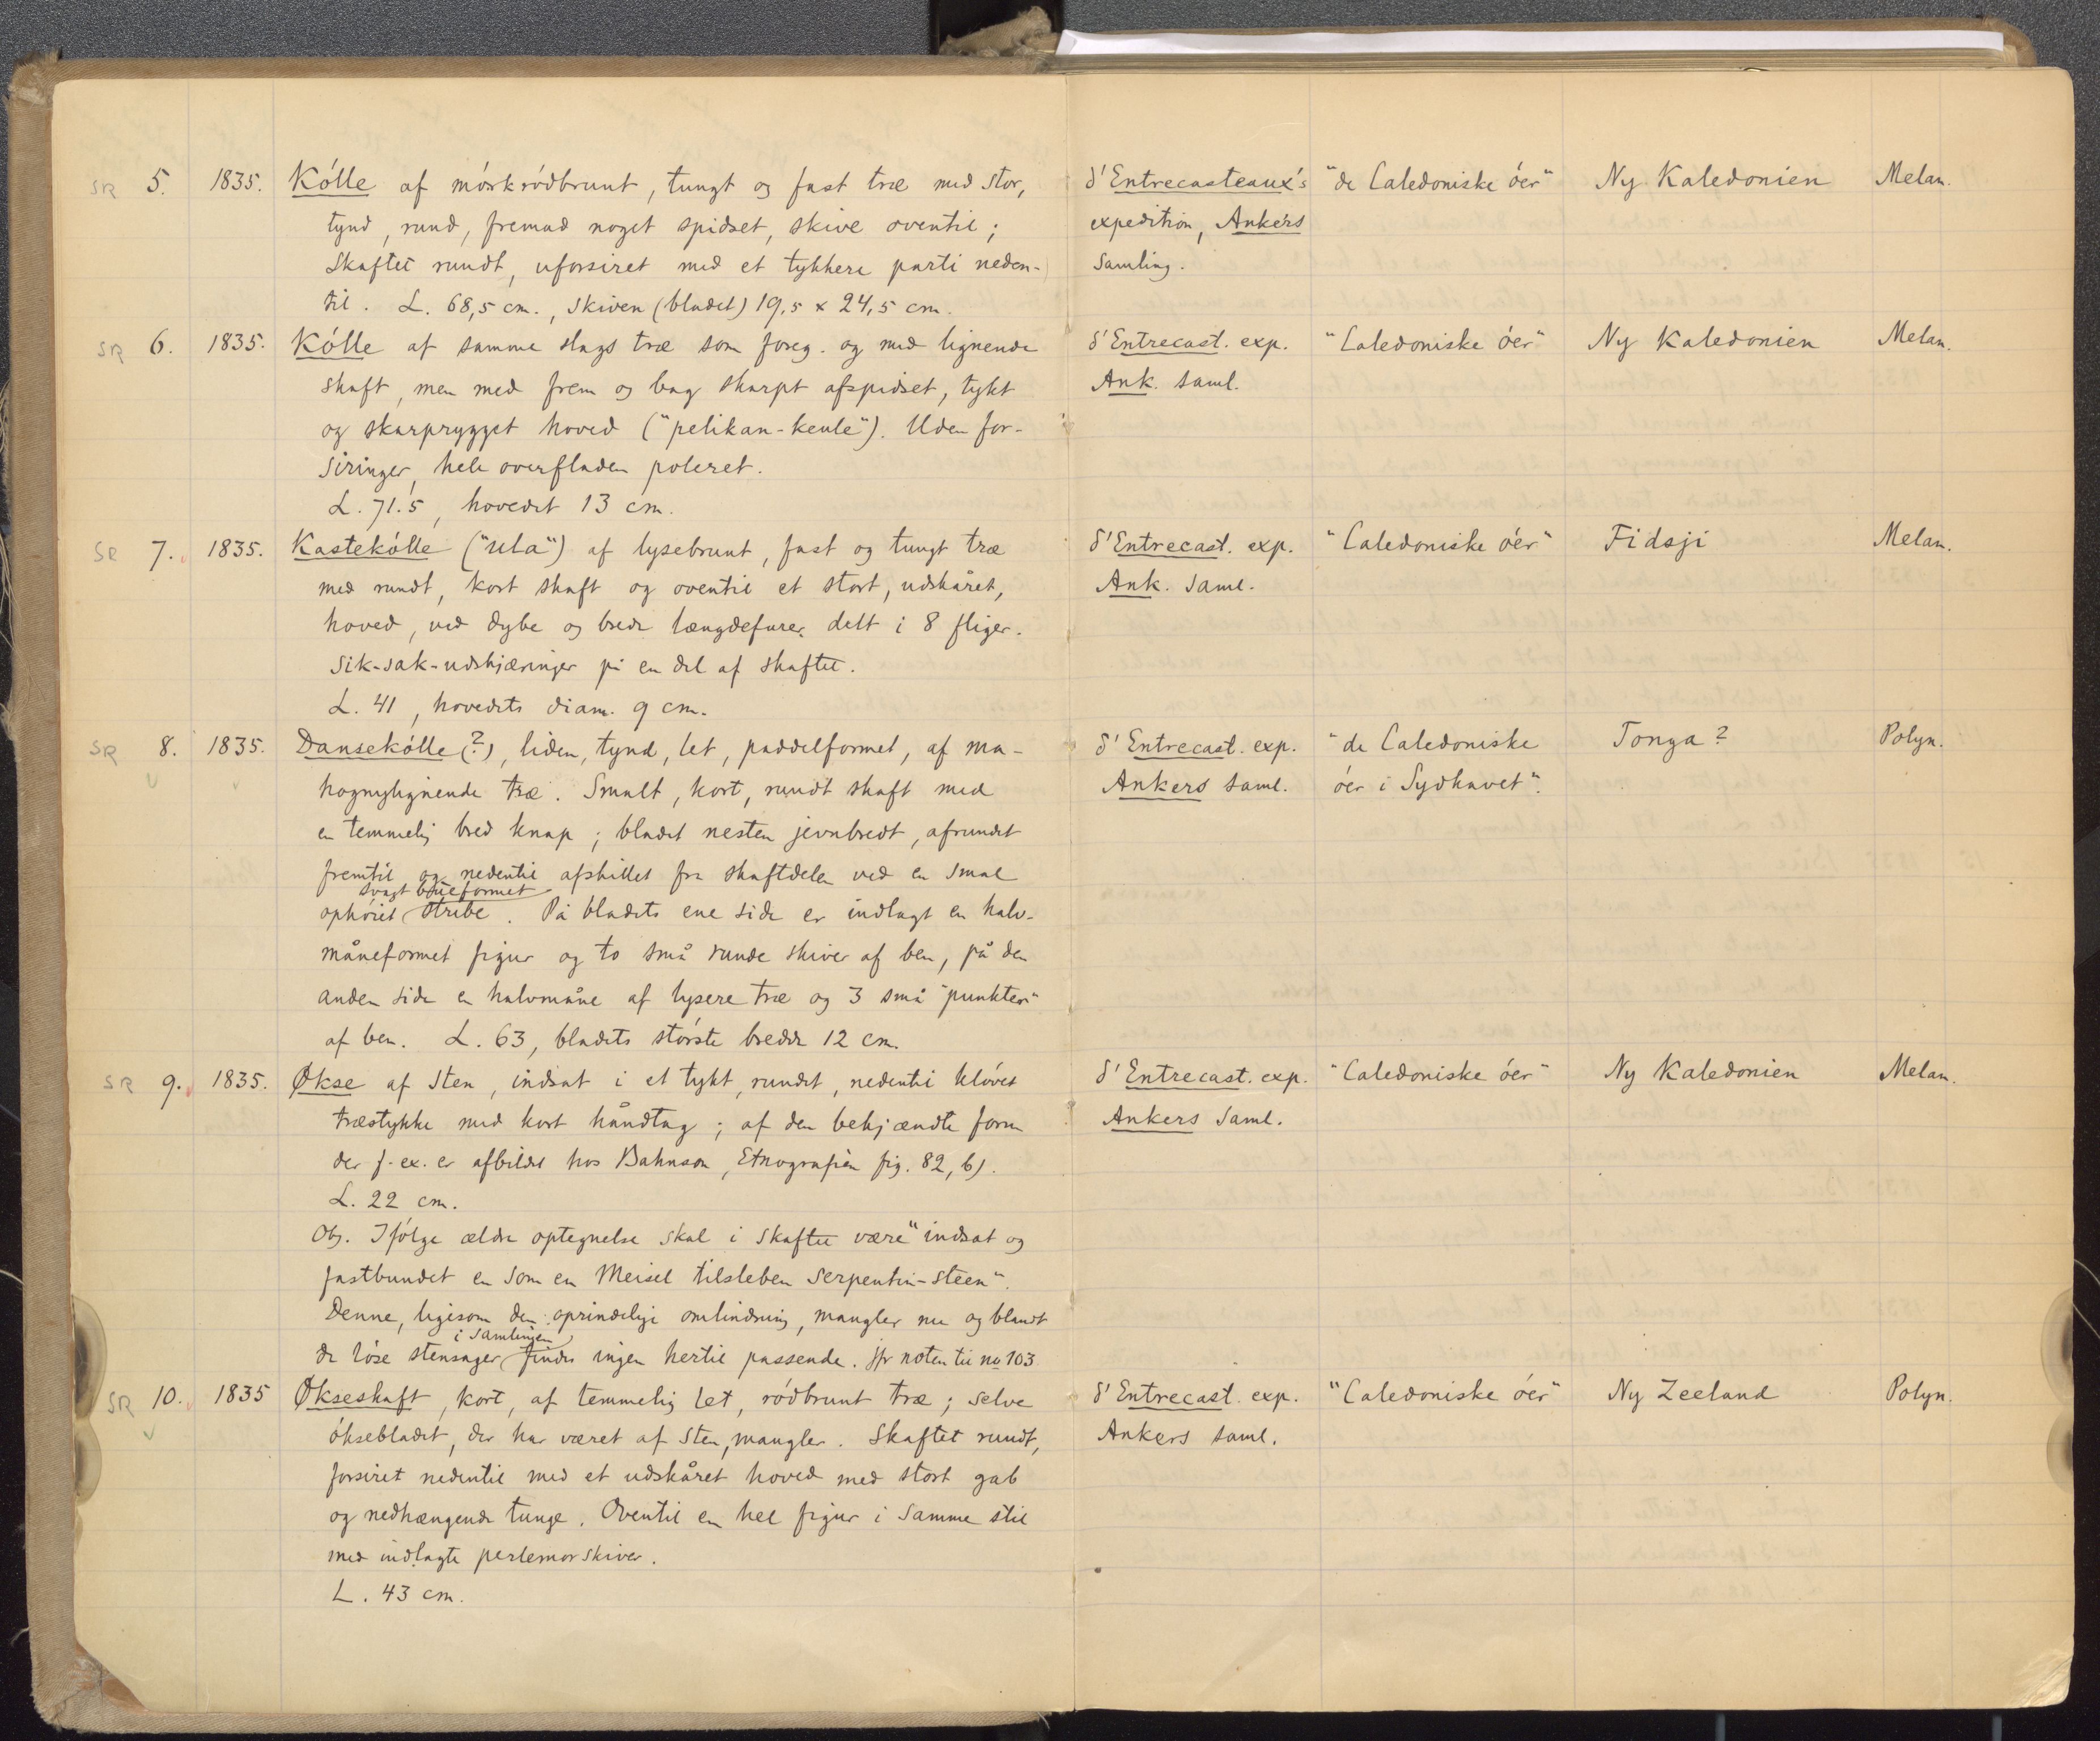 SR 5. 1835. Kólle af mórkródbrunt, tungt og fast træ med stor, d'Entrecasteaux's "de Caledoniske óer" Ny Kaledonien Melan.
tynd, rund, fremad noget spidset, skive oventil; expedition, Ankers
Skaftet rundt, uforsiret med et tykkere parti neden- samling.
til. L. 68,5 cm., skiven (bladet) 19,5 x 24,5 cm.
SR 6. 1835. Kólle af samme slags træ som foreg. og med lignende d'Entrecast. exp. "Caledoniske óer" Ny Kaledonien Melan.
skaft, men med frem og bag skarpt afspidset, tykt Ank. saml.
og skarprygget hoved ("pelikan-keule"). Uden for-
siringer, hele overfladen poleret.
L. 71.5, hovedet 13 cm.
SR 7. 1835. Kastekólle ("ula") af lysebrunt, fast og tungt træ d'Entrecast. exp. "Caledoniske óer" Fidsji Melan.
med rundt, kort skaft og oventil et stort, udskåret, Ank. saml.
hoved, ved dybe og brede længdefurer delt i 8 fliger.
Sik-sak-udskjæringer på en del af skaftet.
L. 41, hovedets diam. 9 cm.
SR 8. 1835. Dansekólle (?), liden, tynd, let, paddelformet, af ma- d'Entrecast. exp. "de Caledoniske Tonga? Polyn.
hognylignende træ. Smalt, kort, rundt skaft med Ankers saml. óer i Sydhavet".
en temmelig bred knap; bladet nesten jevnbredt, afrundet
fremtil og nedentil afskillet fra skaftdelen ved en smal
svagt bueformet
ophóiet stribe. På bladets ene side er indlagt en halv-
måneformet figur og to små runde skiver af ben, på den
anden side en halvmåne af lysere træ og 3 små "punkter"
af ben. L. 63, bladets stórste bredde 12 cm.
SR 9. 1835. Økse af sten, indsat i et tykt, rundt, nedentil klóvet d'Entrecast. exp. "Caledoniske óer" Ny Kaledonien Melan.
træstykke med kort håndtag; af den bekjændte form Ankers saml.
der f. ex. er afbildet hos Bahnson, Etnografien fig. 82, b).
L. 22 cm.
Obs. Ifólge ældre optegnelse skal i skaftet være "indsat og
fastbundet en som en Meisel tilsleben Serpentin-steen".
Denne, ligesom den oprindelige ombindning, mangler nu og blandt
i samlingen
de lóse stensager findes ingen hertil passende. Jfr noten til no 103
SR 10. 1835 Økseskaft, kort, af temmelig let, ródbrunt træ; selve d'Entrecast. exp. "Caledoniske óer" Ny Zeeland Polyn.
óksebladet, der har været af sten, mangler. Skaftet rundt, Ankers saml.
forsiret nedentil med et udskåret hoved med stort gab
og nedhængende tunge. Oventil en hel figur i samme stil
med indlagte perlemorskiver.
L. 43 cm.